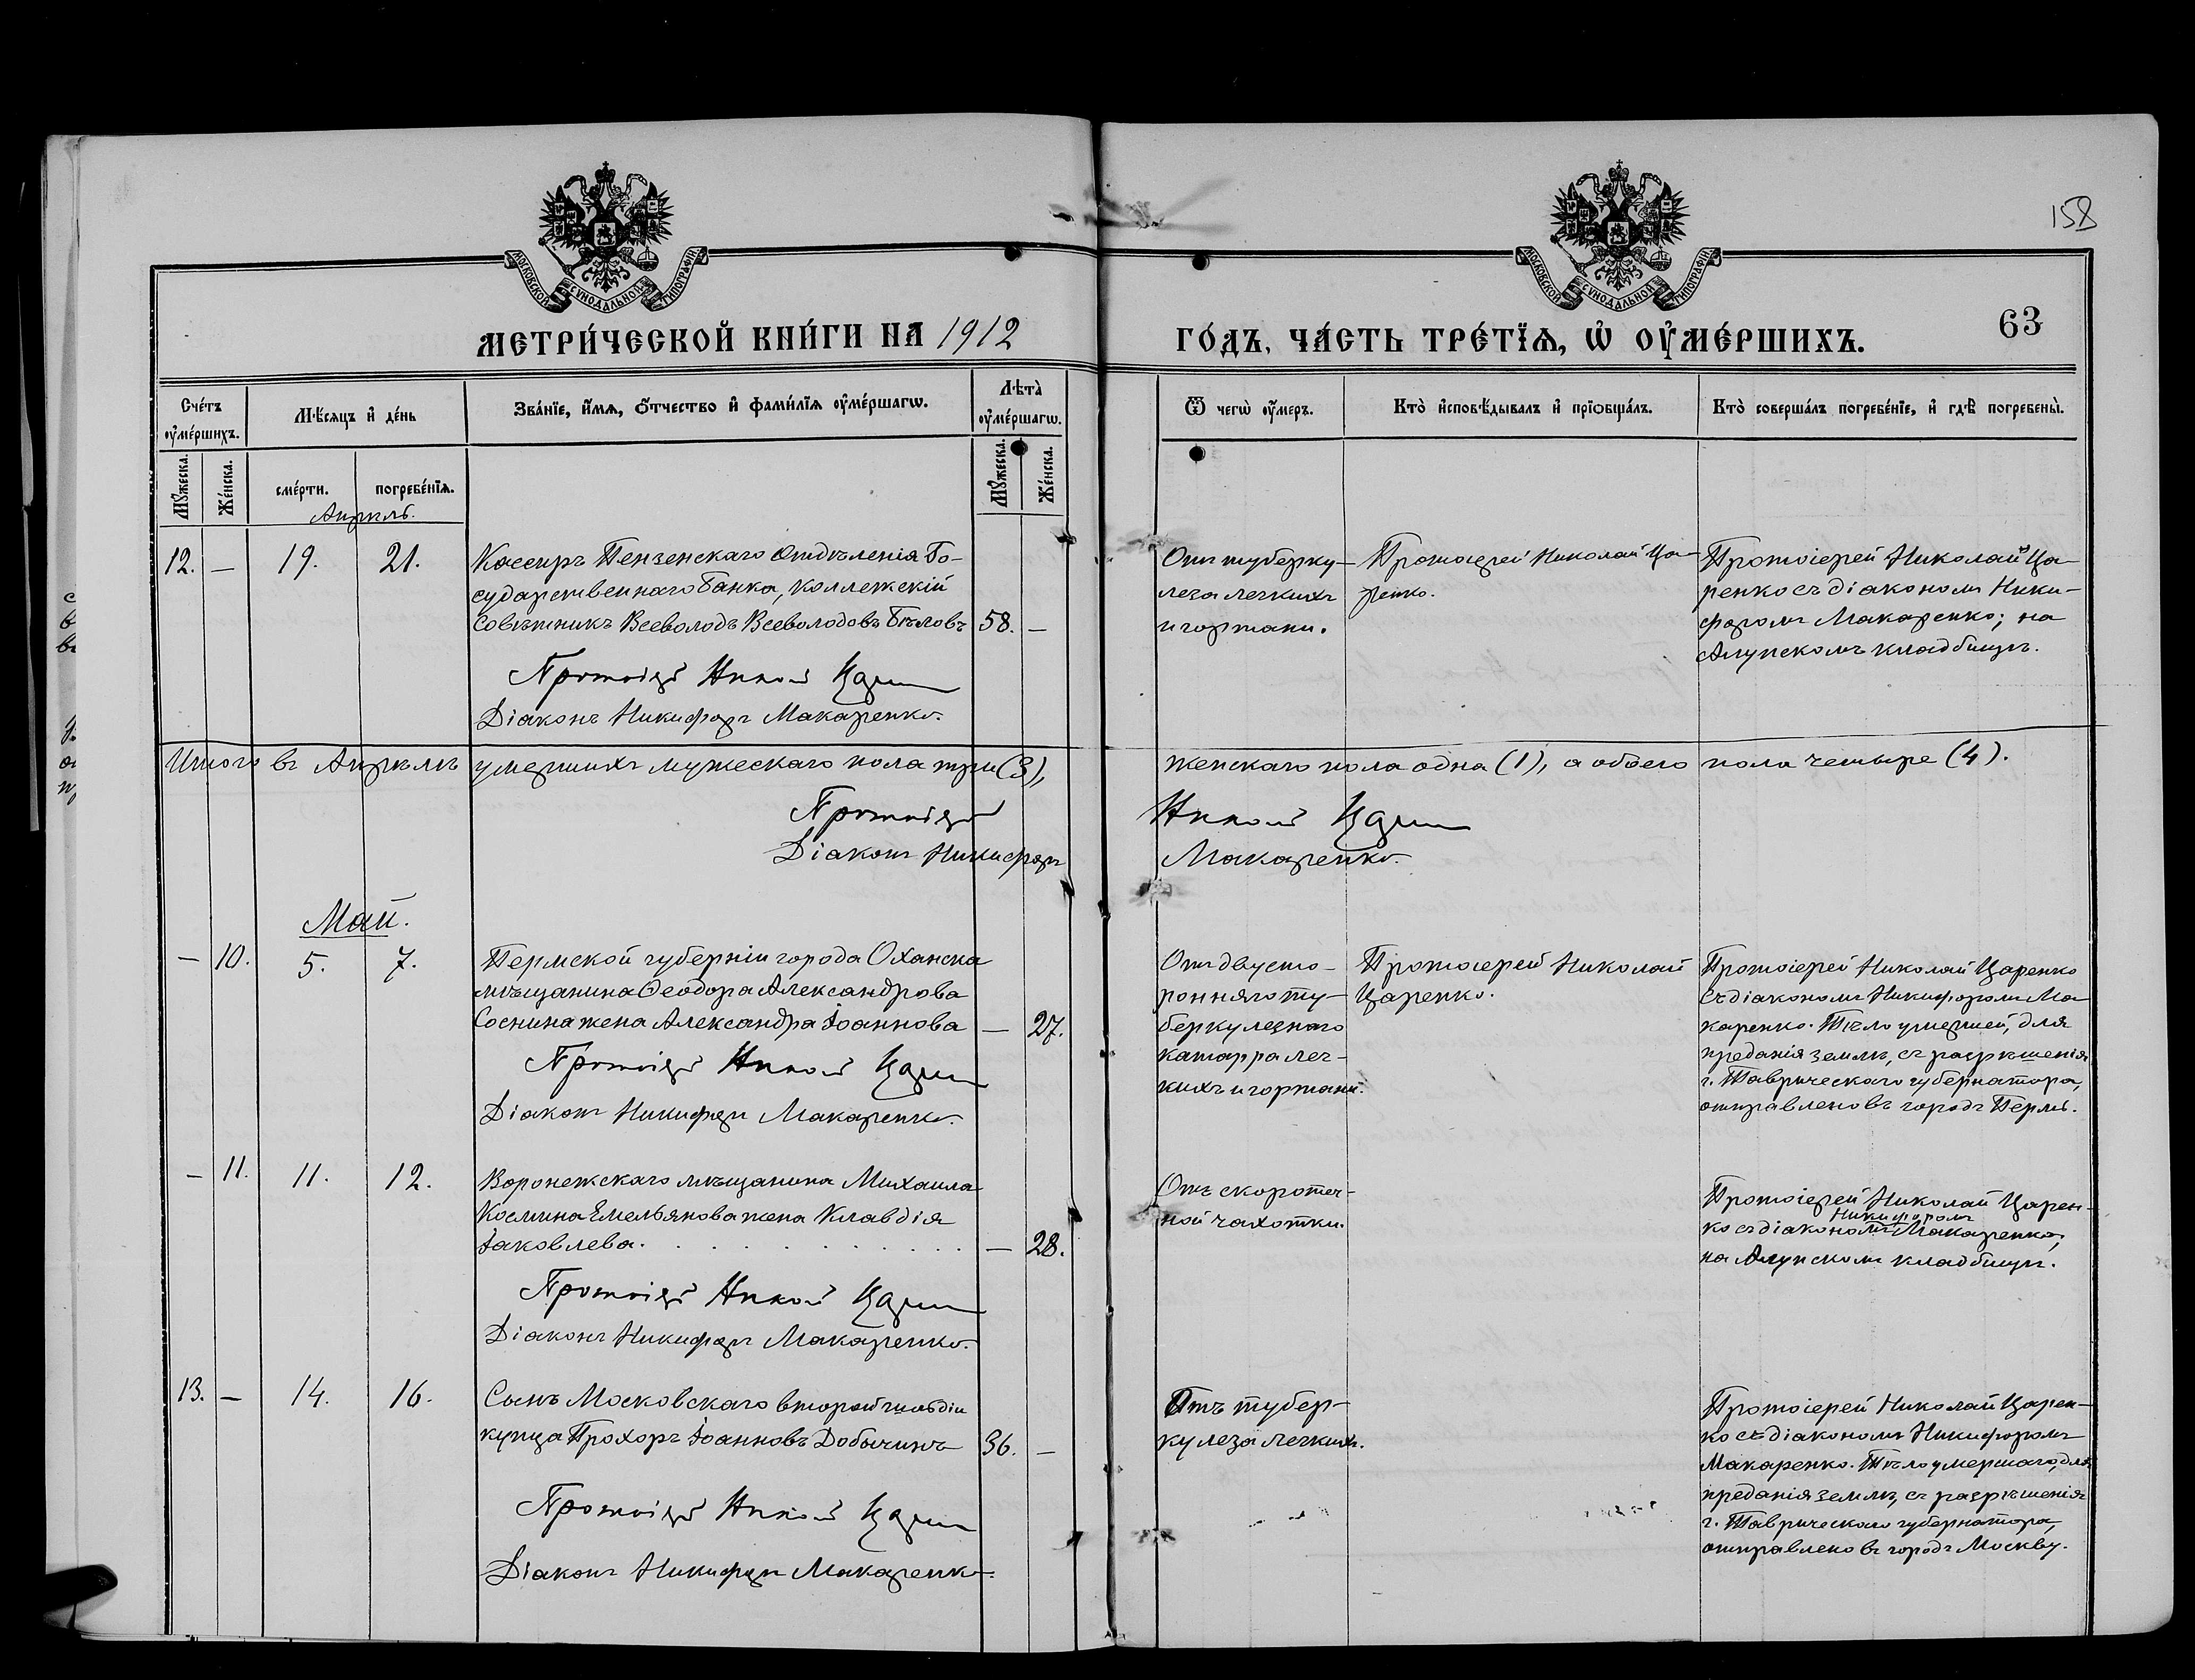 158
МОСКОВСКОЙ СѴНОДАЛЬНОЙ ТИПОГРАФІИ.
МОСКОВСКОЙ СѴНОДАЛЬНОЙ ТИПОГРАФІИ.
МЕТРИ́ЧЕСКОЙ КНИ́ГИ НА 1912
ГО́ДЪ, ЧА́СТЬ ТРЕ́ТЇѦ, Ѡ҆ ОУ҆МЕ́РШИХЪ.
63
Сче́тъ оу҆ме́ршихъ.
Мꙋ́жеска.
Же́нска.
Мѣ́сѧцъ и҆ де́нь
сме́рти.
погребе́нїѧ.
Апрѣль.
Зва́нїе, и҆́мѧ, ѻ҆́тчество и҆ фами́лїѧ оу҆ме́ршагѡ.
Лѣ̀та оу҆ме́ршагѡ.
Мꙋ́жеска.
Же́нска.
Ѿ чегѡ̀ оу҆́меръ.
Кто̀ и҆сповѣ́дывалъ и҆ прїѻбща́лъ.
Кто̀ соверша́лъ погребе́нїе, и҆ гдѣ̀ погребены̀.
12. — 19. 21.
Кассиръ Пензенскаго Отдѣленія Го-
сударственнаго Банка, коллежскій
Совѣтникъ Всеволодъ Всеволодовъ Бѣловъ 58. —
Протоіерей Николай Царенко
Діаконъ Никифоръ Макаренко.
Отъ туберку-
леза легкихъ
и гортани.
Протоіерей Николай Ца-
ренко.
Протоіерей Николай Ца-
ренко съ діакономъ Ники-
форомъ Макаренко; на
Алупскомъ кладбищѣ.
Итого въ Апрѣлѣ умершихъ мужескаго пола три (3), женскаго пола одна (1), а обоего пола четыре (4).
Протоіерей Николай Царенко
Діаконъ Никифоръ Макаренко.
Май.
— 10. 5. 7.
Пермской губерніи города Оханска
мѣщанина Ѳеодора Александрова
Соснина жена Александра Іоаннова — 27.
Протоіерей Николай Царенко
Діаконъ Никифоръ Макаренко.
Отъ двусто-
ронняго ту-
беркулезнаго
катарра лег-
кихъ и гортани.
Протоіерей Николай
Царенко.
Протоіерей Николай Царенко
съ діакономъ Никифоромъ Ма-
каренко. Тѣло умершей, для
преданія землѣ, съ разрѣшенія
г. Таврическаго губернатора,
отправлено въ городъ Пермь.
— 11. 11. 12.
Воронежскаго мѣщанина Михаила
Космина Емельянова жена Клавдія
Іаковлева. . . . . . . . . . . . — 28.
Протоіерей Николай Царенко
Діаконъ Никифоръ Макаренко.
Отъ скоротеч-
ной чахотки.
Протоіерей Николай Царен-
Никифоромъ
ко съ діакономъ Макаренко;
на Алупскомъ кладбищѣ.
13. — 14. 16.
Сынъ Московскаго второй гильдіи
купца Прохоръ Іоанновъ Добычинъ 36. —
Протоіерей Николай Царенко
Діаконъ Никифоръ Макаренко.
Отъ тубер-
кулеза легкихъ.
Протоіерей Николай Царен-
ко съ діакономъ Никифоромъ
Макаренко. Тѣло умершаго, для
преданія землѣ, съ разрѣшенія
г. Таврическаго губернатора,
отправлено въ городъ Москву.